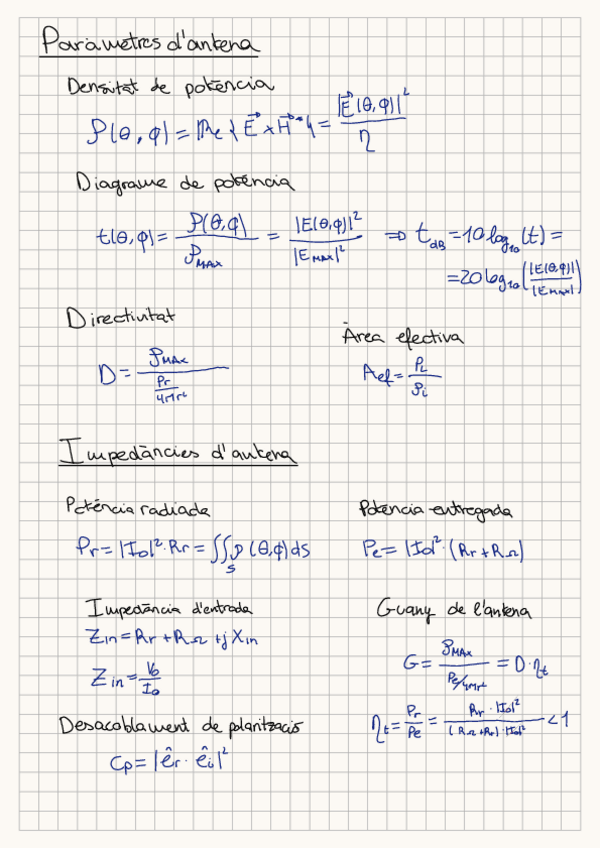 Paràmetres d'antena
Densitat de potència
𝒫(θ,ϕ) = Re{E⃗ × H⃗*} = |E⃗(θ,ϕ)|² / η
Diagrama de potència
t(θ,ϕ) = 𝒫(θ,ϕ) / 𝒫MAX = |E(θ,ϕ)|² / |EMAX|² ⇒ t_dB = 10 log₁₀(t) =
= 20 log₁₀(|E(θ,ϕ)| / |EMAX|)
Directivitat
D = 𝒫MAX / (Pr / 4πr²)
Àrea efectiva
Aef = PL / 𝒫i
Impedàncies d'antena
Potència radiada
Pr = |I₀|²·Rr = ∬_S 𝒫(θ,ϕ) ds
Potència entregada
Pe = |I₀|²·(Rr + RΩ)
Impedància d'entrada
Zin = Rr + RΩ + jXin
Zin = V₀ / I₀
Guany de l'antena
G = 𝒫MAX / (Pe/4πr²) = D·ηt
ηt = Pr / Pe = Rr·|I₀|² / (RΩ+Rr)·|I₀|² < 1
Desacoblament de polarització
Cp = |êr · êi|²